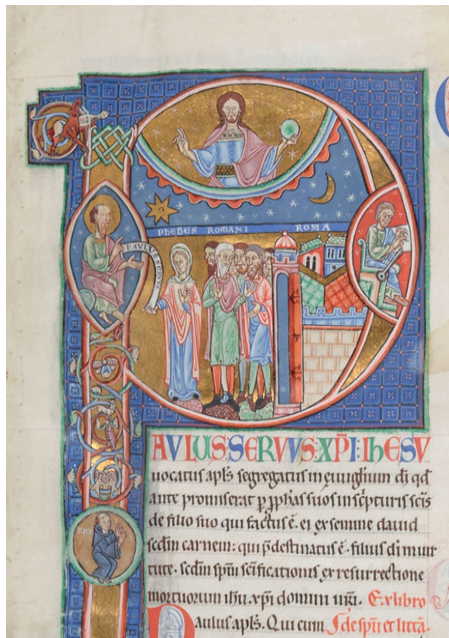 PHEBES ROMANI ROMA
PAVLVS
AVLVS: SERVVS: XP̄I: IhESV
uocatus apl̄s segregatus in euuḡlium dī qd̄
ante promiserat p ꝓphas suos in sc̄pturis sc̄is
de filio suo qui factus ē. ei ex semine dauid
scd̄m carnem: qui p̄destinatus ē. filius dī in uir
tute. scd̄m spm̄ sc̄ificationis ex resurrectione
mortuorum ihu. xp̄i domini nr̄i. Ex libro
Paulus apl̄s. Qui cum S. de spū et littā.